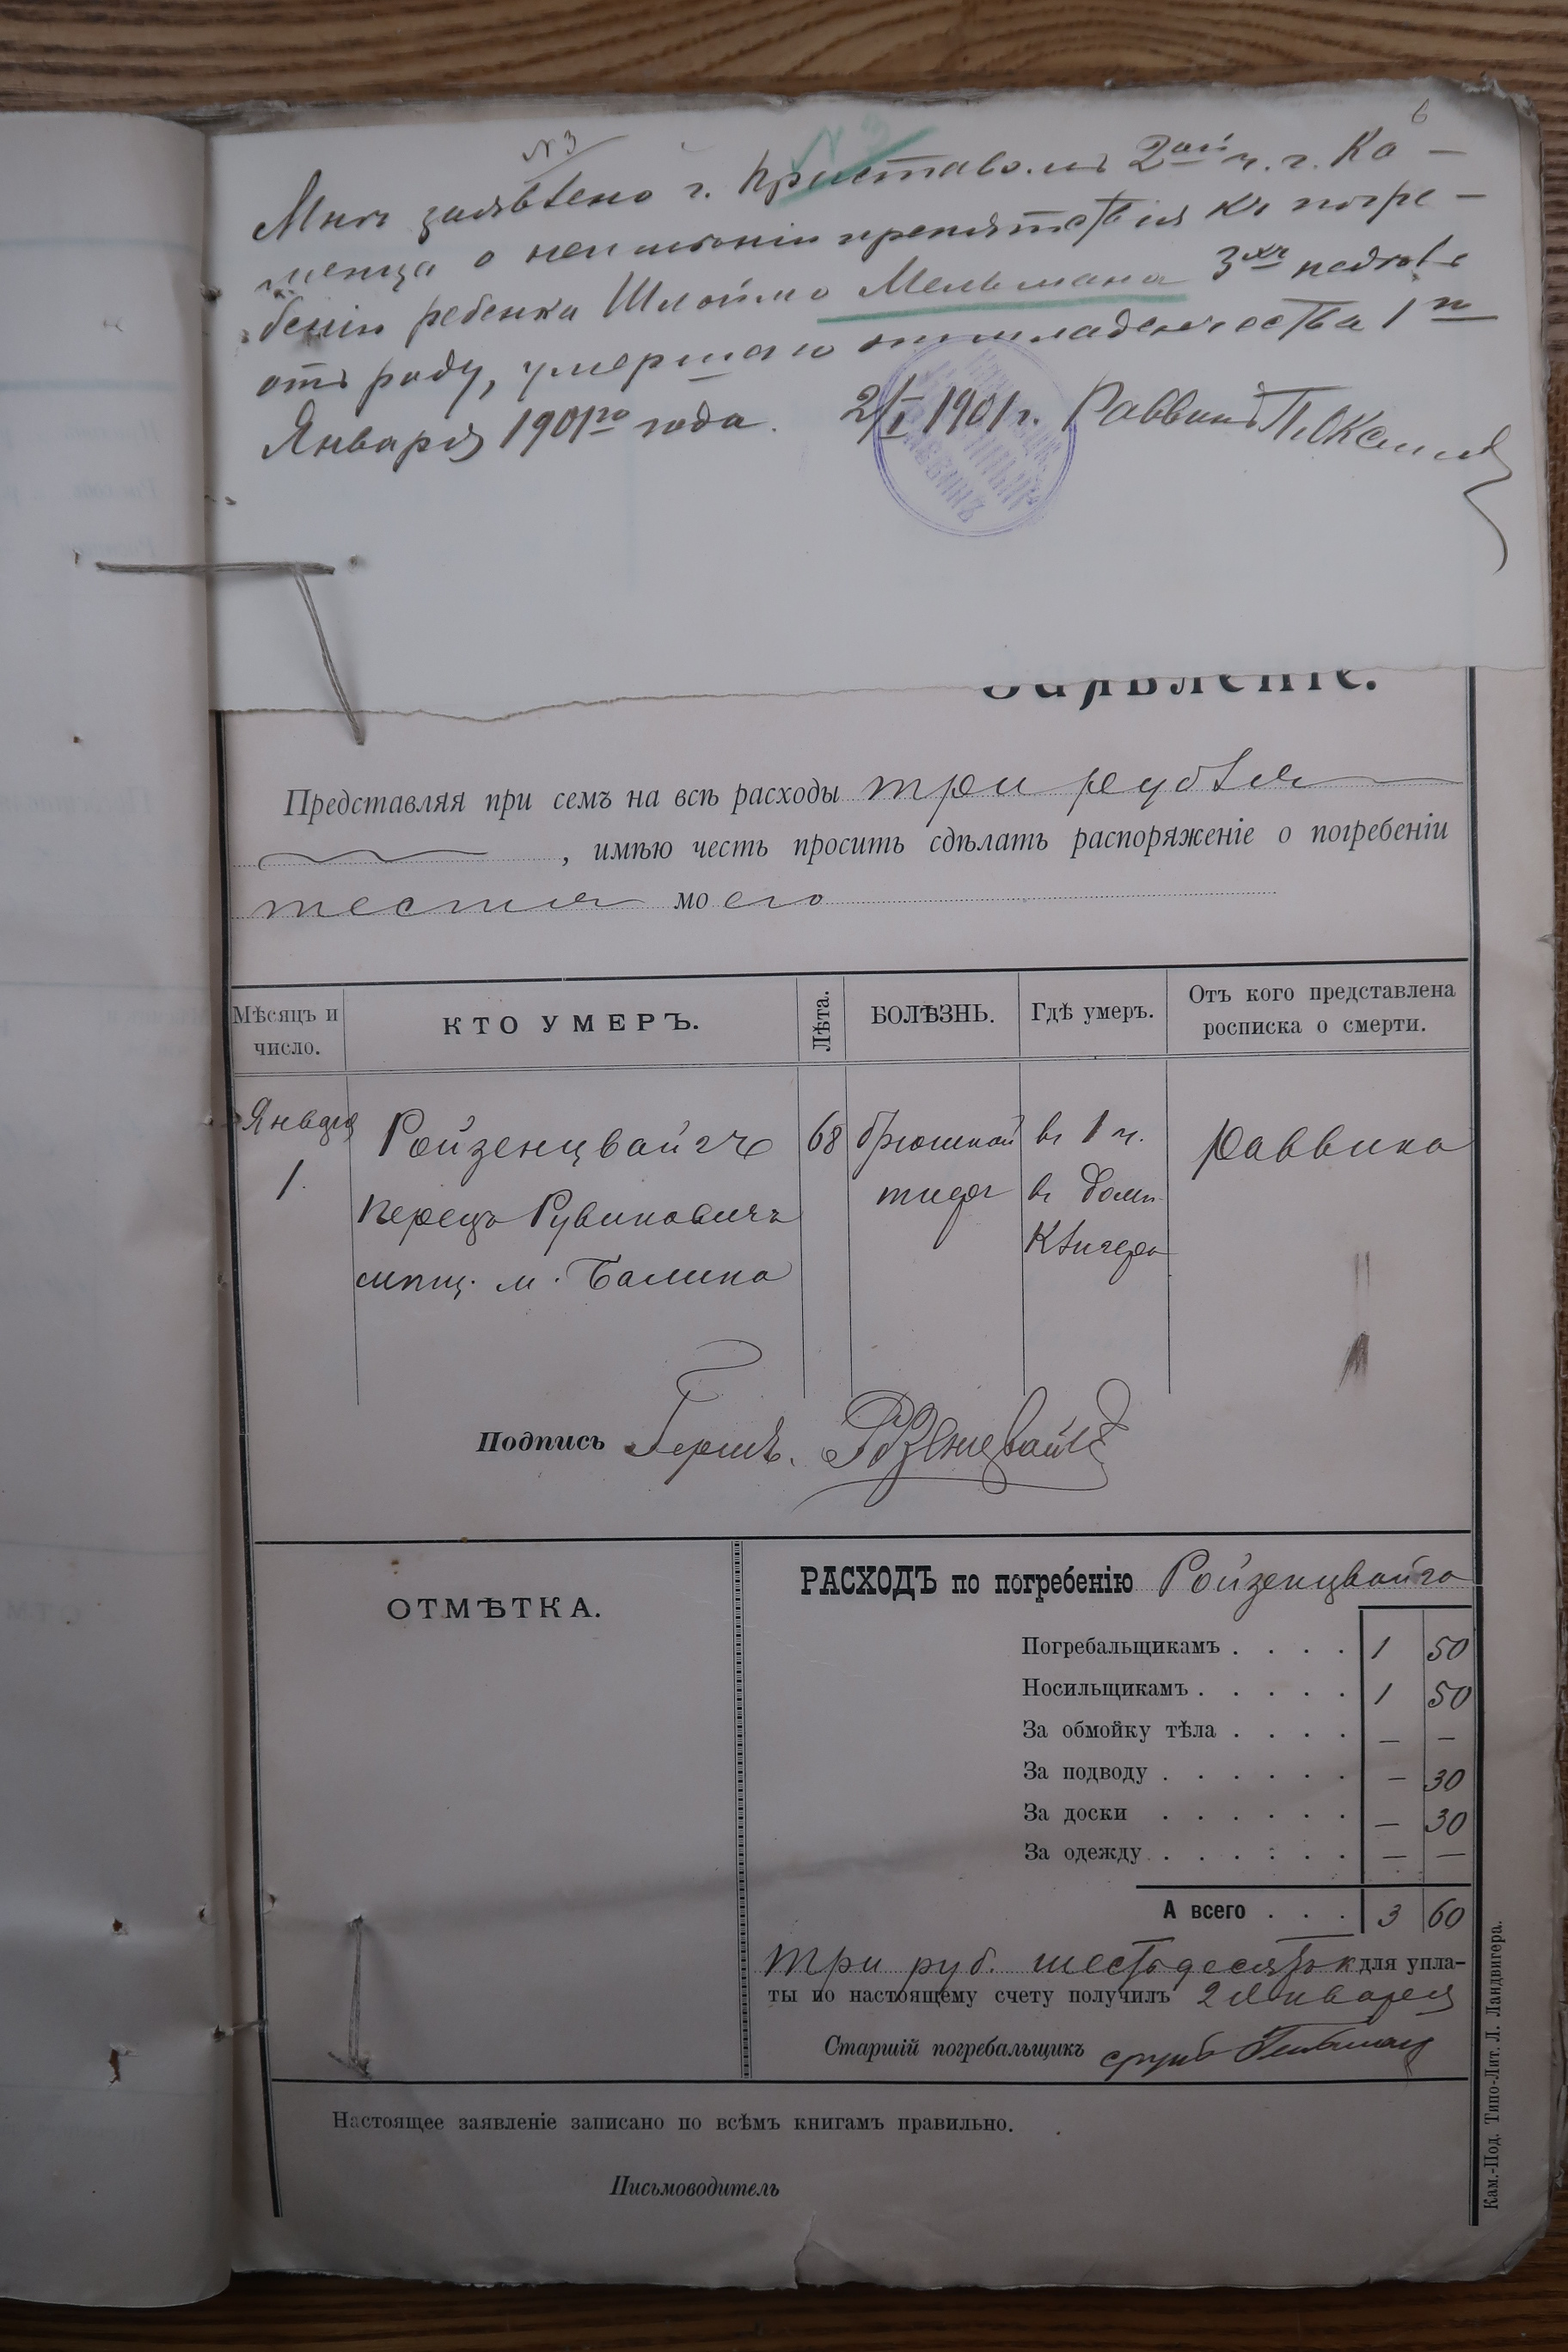 6
№ 3
№ 3
Мнѣ заявлено г. Приставомъ 2ой ч. г. Ка-
менца о неимѣніи препятствія къ погре-
бенію ребенка Шлоймо Мельмана 3хъ недѣль
отъ роду, умершаго отъ младенчества 1го
Января 1901го года. 2/I 1901 г. Раввинъ
Заявленіе.
Представляя при семъ на всѣ расходы три рубля
, имѣю честь просить сдѣлать распоряженіе о погребеніи
тестя моего
Мѣсяцъ и число. КТО УМЕРЪ. Лѣта. БОЛѢЗНЬ. Гдѣ умеръ. Отъ кого представлена росписка о смерти.
Января Ройзенцвайгъ 68 брюшной въ 1 ч. Раввина
1. Перецъ Рувиновичъ тифъ въ домѣ
мѣщ. м. Балина
Подпись Гершъ.
ОТМѢТКА.
РАСХОДЪ по погребенію Ройзенцвайга
Погребальщикамъ . . . . 1 50
Носильщикамъ . . . . . 1 50
За обмойку тѣла . . . . — —
За подводу . . . . . . — 30
За доски . . . . . . — 30
За одежду . . . . . . — —
А всего . . . 3 60
Три руб. шестьдесятъ к для упла-
ты по настоящему счету получилъ 2 Января
Старшій погребальщикъ
Настоящее заявленіе записано по всѣмъ книгамъ правильно.
Письмоводитель
Кам.-Под. Типо-Лит. Л. Ландвигера.